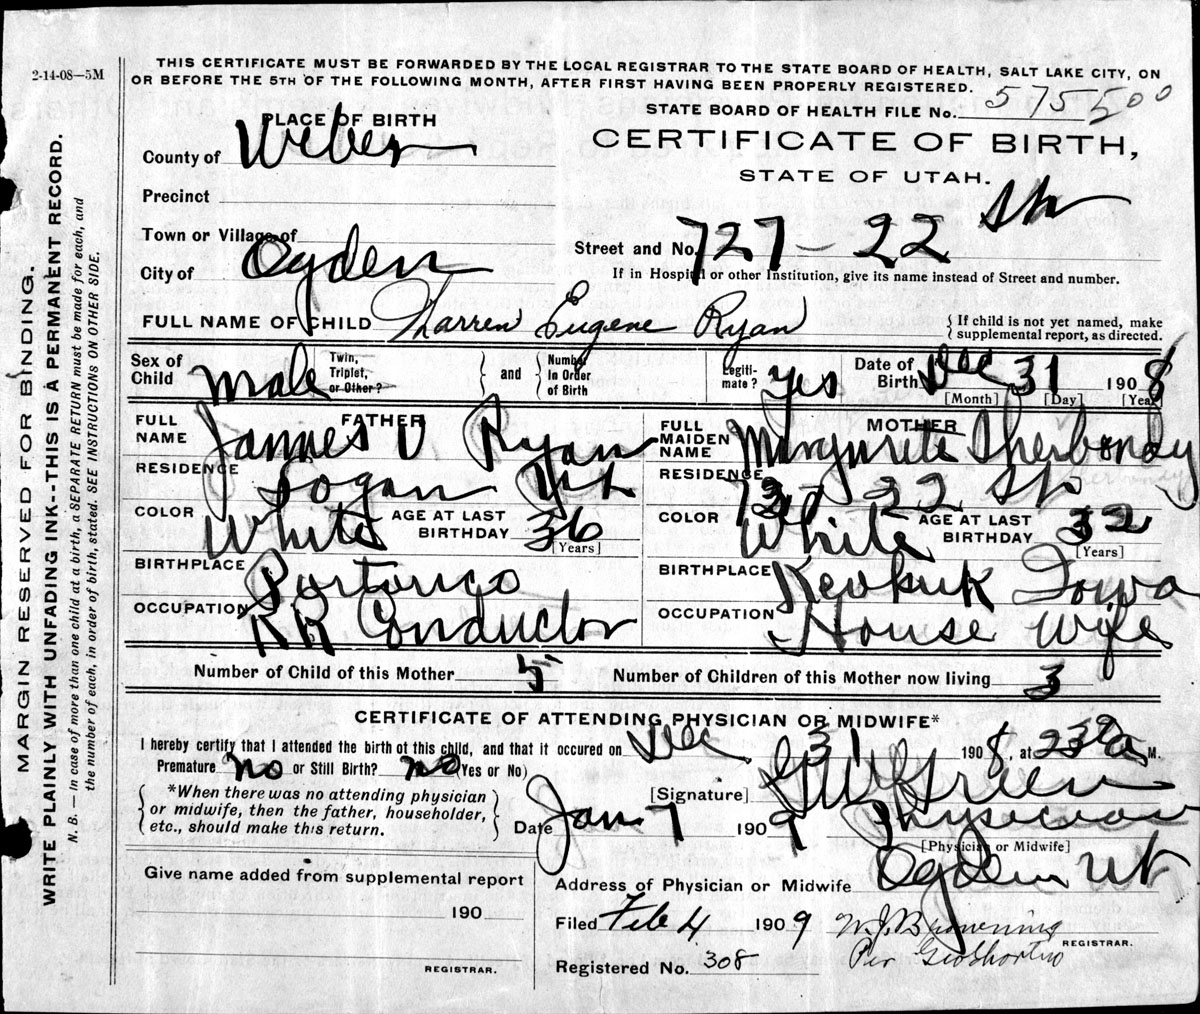 2-14-08—5M
THIS CERTIFICATE MUST BE FORWARDED BY THE LOCAL REGISTRAR TO THE STATE BOARD OF HEALTH, SALT LAKE CITY, ON
OR BEFORE THE 5TH OF THE FOLLOWING MONTH, AFTER FIRST HAVING BEEN PROPERLY REGISTERED.
STATE BOARD OF HEALTH FILE No. 575500
PLACE OF BIRTH
CERTIFICATE OF BIRTH,
County of Weber
STATE OF UTAH.
Precinct
Town or Village of
Street and No. 727 - 22 St
City of Ogden
If in Hospital or other Institution, give its name instead of Street and number.
FULL NAME OF CHILD Warren Eugene Ryan { If child is not yet named, make supplemental report, as directed.
Sex of Child Male Twin, Triplet, or Other? } and { Number In Order of Birth Legiti-mate? Yes Date of Birth Dec 31 1908
[Month] [Day] [Year]
FATHER
MOTHER
FULL NAME James V Ryan
FULL MAIDEN NAME Margurete Sherbondy
RESIDENCE Logan Ut
RESIDENCE 22 St
COLOR White AGE AT LAST BIRTHDAY 36 [Years]
COLOR White AGE AT LAST BIRTHDAY 32 [Years]
BIRTHPLACE
BIRTHPLACE Keokuk Iowa
OCCUPATION RR Conductor
OCCUPATION House Wife
Number of Child of this Mother 5
Number of Children of this Mother now living 3
CERTIFICATE OF ATTENDING PHYSICIAN OR MIDWIFE*
I hereby certify that I attended the birth of this child, and that it occured on Dec 31 1908, at M.
Premature No or Still Birth? no (Yes or No)
{ *When there was no attending physician
or midwife, then the father, householder,
etc., should make this return. }
[Signature] Green
Date Jan 7 1909 Physician
[Physician or Midwife]
Give name added from supplemental report
190
REGISTRAR.
Address of Physician or Midwife Ogden Ut
Filed Feb 4 1909 W. J. Browning
REGISTRAR.
Registered No. 308 Per Geo Shorten
MARGIN RESERVED FOR BINDING.
WRITE PLAINLY WITH UNFADING INK---THIS IS A PERMANENT RECORD.
N. B. — In case of more than one child at a birth, a SEPARATE RETURN must be made for each, and
the number of each, in order of birth, stated. SEE INSTRUCTIONS ON OTHER SIDE.